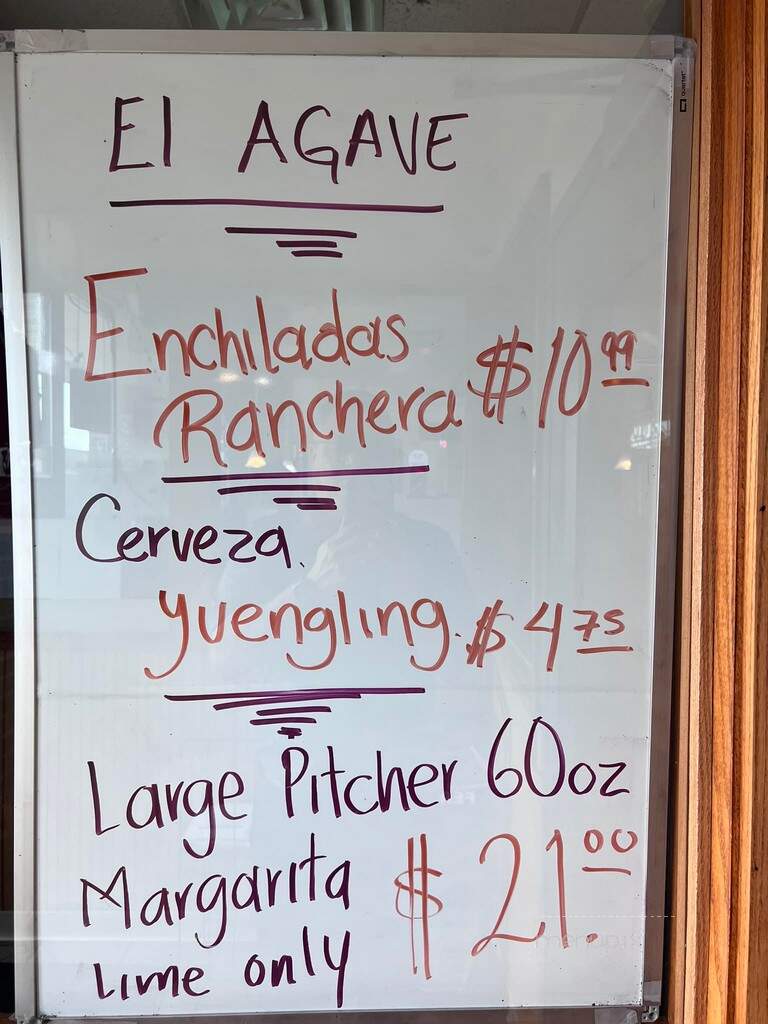 El AGAVE
Enchiladas
Ranchera $10.99
Cerveza.
Yuengling. $4.75
Large Pitcher 60oz
Margarita $21.00
Lime only